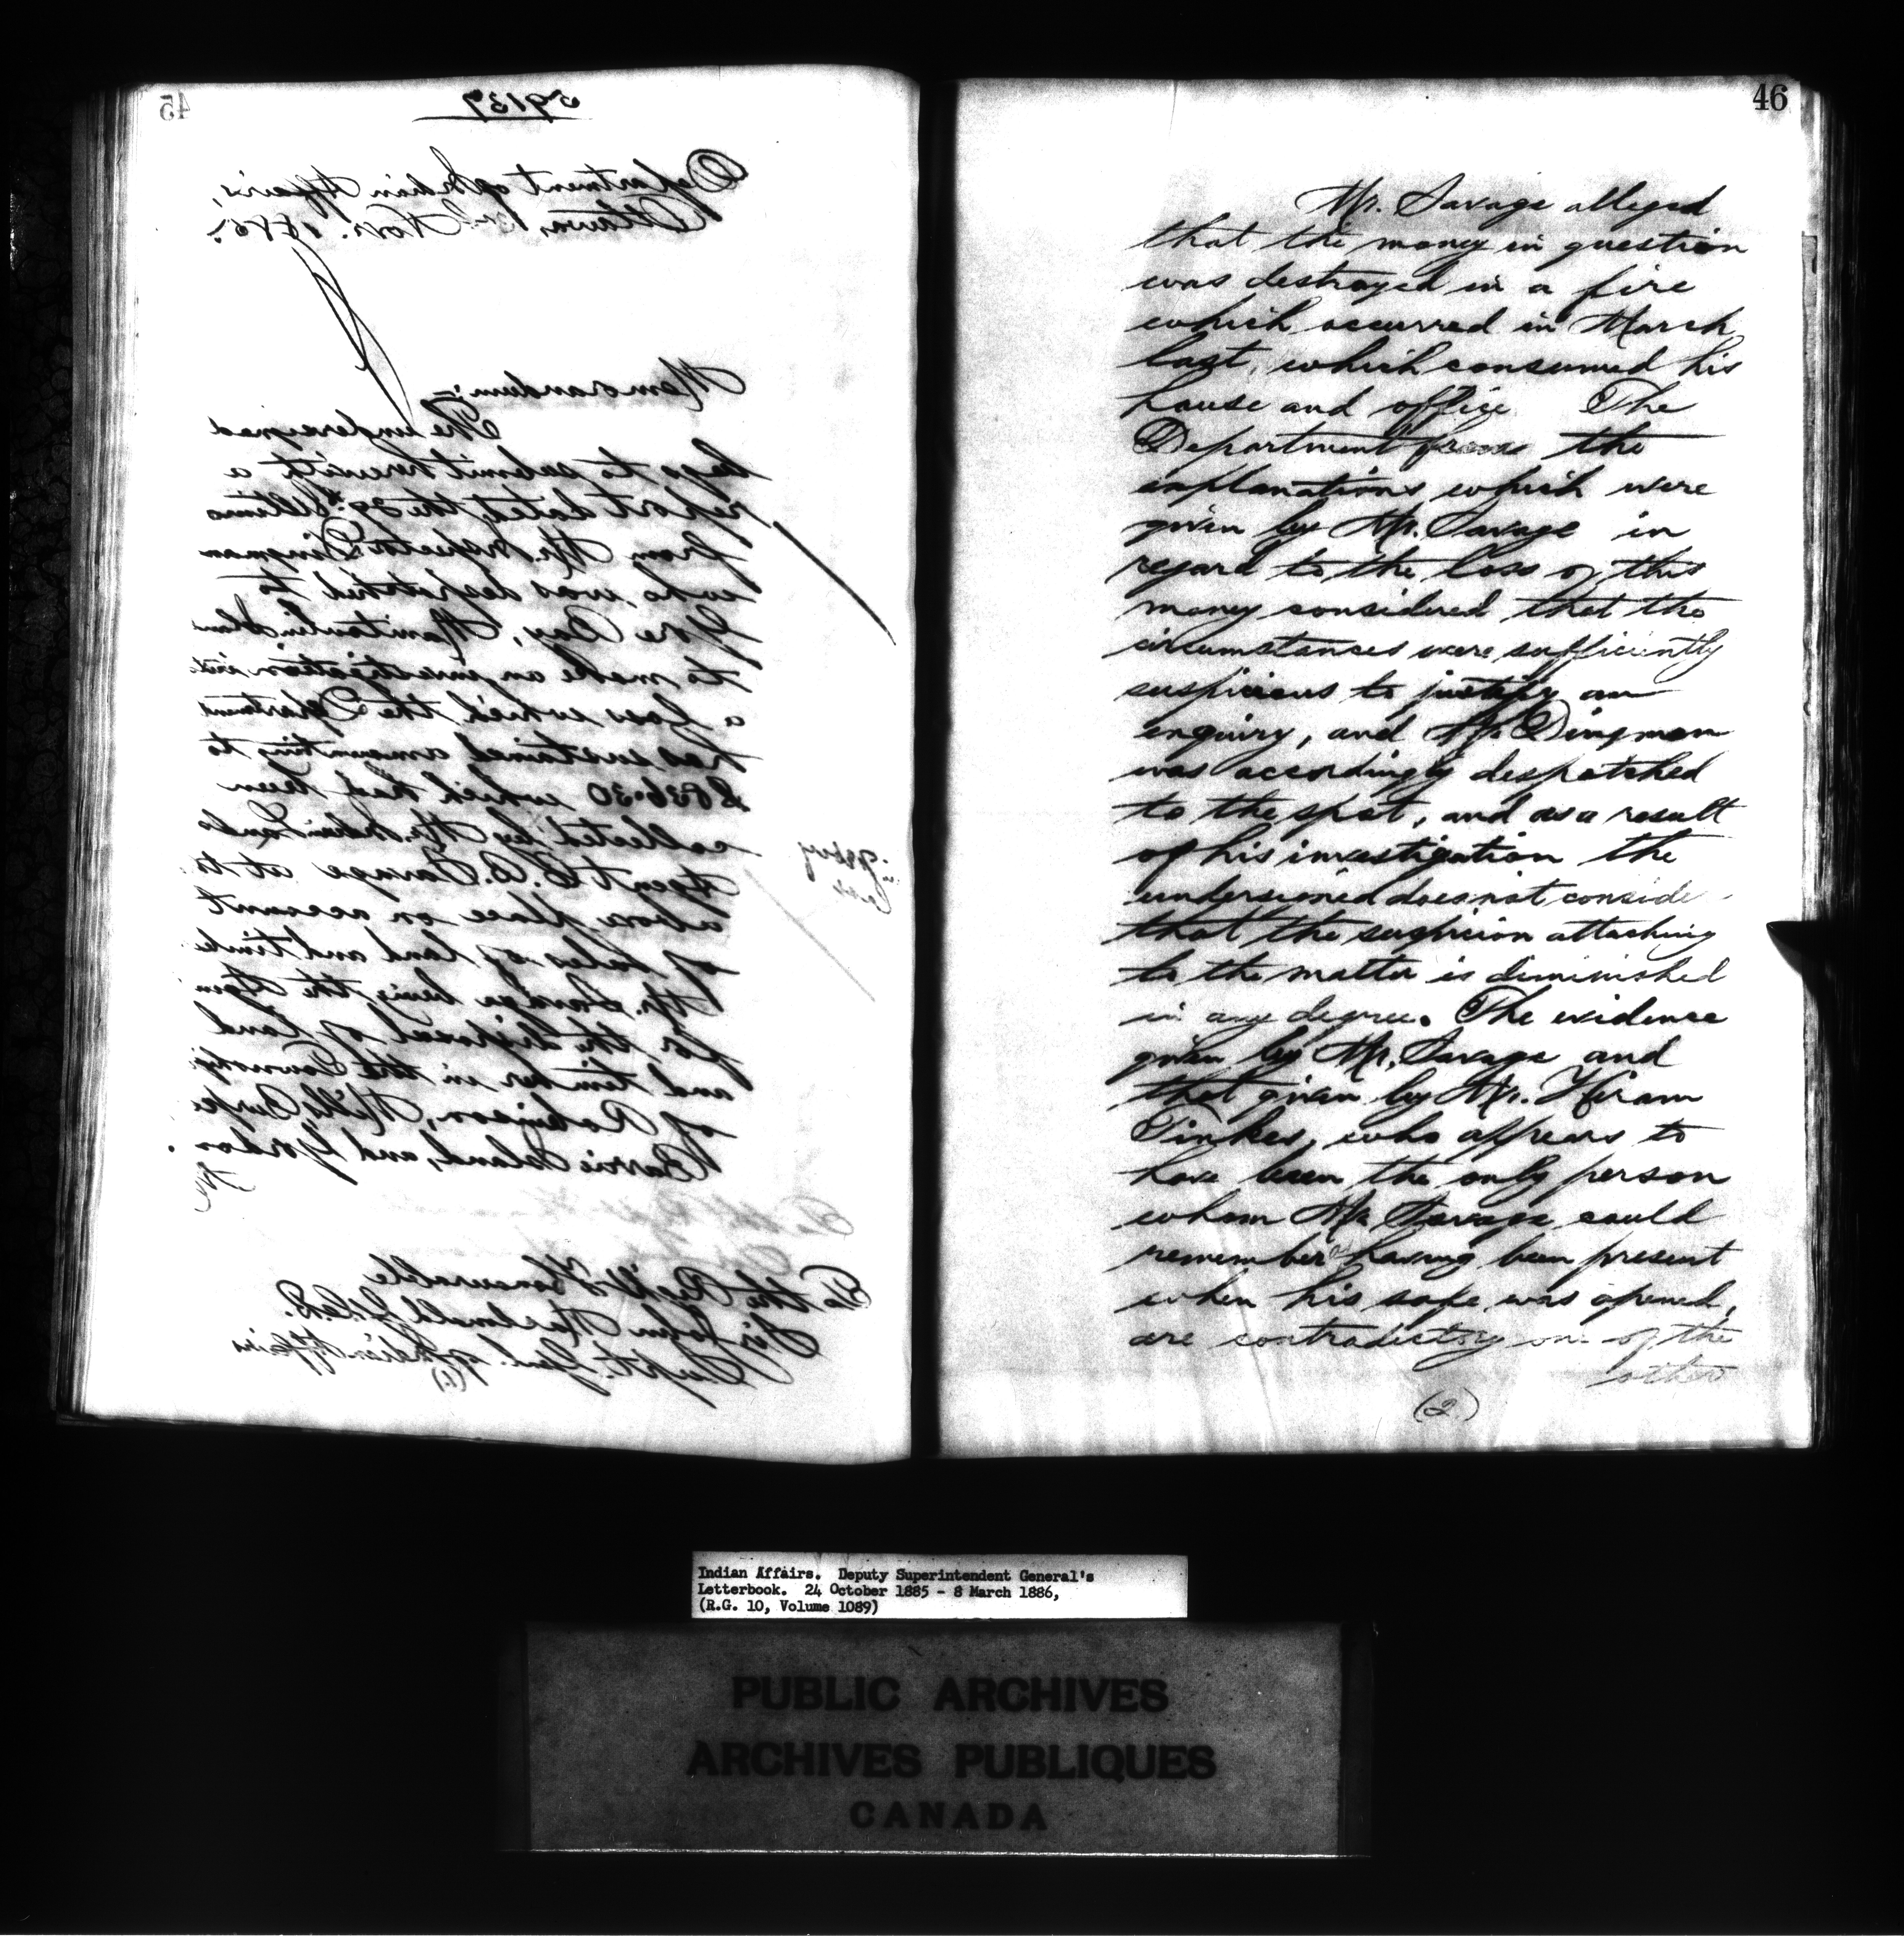 45
59137
Department of Indian Affairs,
Ottawa, Novr. 1885.
Memorandum:-
The undersigned
begs to submit herewith a
report dated the 29th Ultimo
from Mr. Inspector Dingman
who was despatched to
Gore Bay, Manitoulin Island
to make an investigation into
a loss which the Department
has sustained amounting to
which had been
collected by Mr. Indian Lands
Agent B. Savage at the
above place on account
of sales of land and timber
Mr. Savage being the Agent
for the disposal of land
and timber in the Townships
of Robinson, Mills, Burpee
Barrie Island, and Gordon.
To the Right Honourable
Sir John Macdonald G.C.B.
Supt. Genl. of Indian Affairs
(1.)
46
Mr. Savage alleged
that the money in question
was destroyed in a fire
which occurred in March
last, which consumed his
house and office The
Department from the
explanations which were
given by Mr. Savage in
regard to the loss of this
money considered that the
circumstances were sufficiently
suspicious to justify an
enquiry, and Mr. Dingman
was accordingly despatched
to the spot, and as a result
of his investigation the
undersigned does not conside
that the suspicion attaching
to the matter is diminished
in any degree. The evidence
given by Mr. Savage and
that given by Mr. Hiram
Tinkes, who appears to
have been the only person
whom Mr. Savage could
remember having been present
when his safe was opened,
are contradictory one of the
other
(2)
Indian Affairs. Deputy Superintendent General's
Letterbook. 24 October 1885 - 8 March 1886,
(R.G. 10, Volume 1089)
PUBLIC ARCHIVES
ARCHIVES PUBLIQUES
CANADA